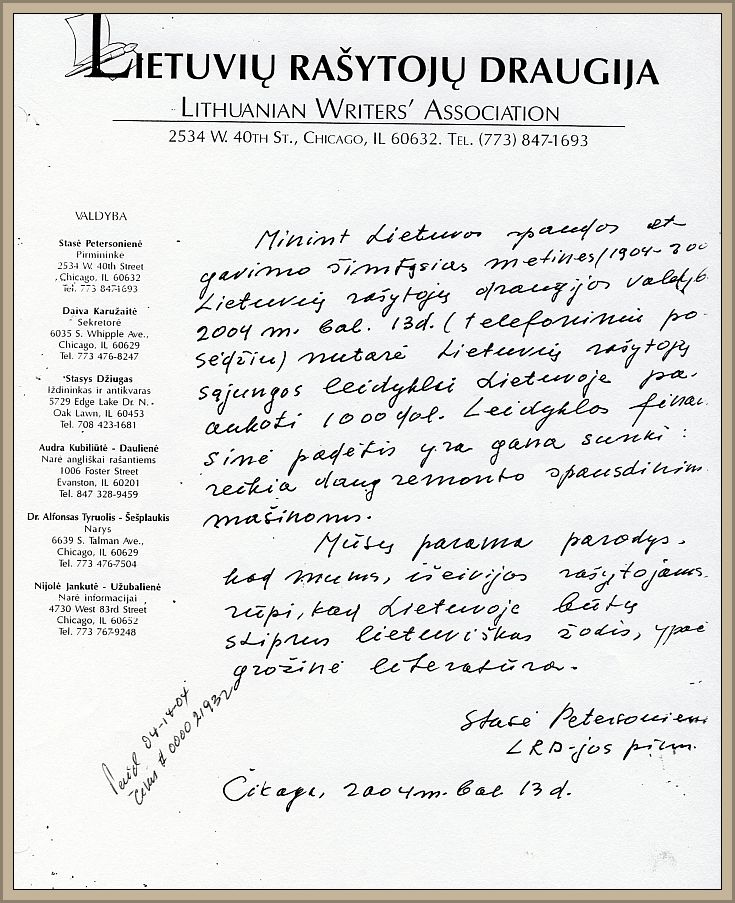 LIETUVIŲ RAŠYTOJŲ DRAUGIJA
LITHUANIAN WRITERS' ASSOCIATION
2534 W. 40TH ST., CHICAGO, IL 60632. TEL. (773) 847-1693
VALDYBA
Stasė Petersonienė
Pirmininke
2534 W. 40th Street
Chicago, IL 60632
Tel. 773 847-1693
Daiva Karužaitė
Sekretorė
6035 S. Whipple Ave.,
Chicago, IL 60629
Tel. 773 476-8247
Stasys Džiugas
Iždininkas ir antikvaras
5729 Edge Lake Dr. N. -
Oak Lawn, IL 60453
Tel. 708 423-1681
Audra Kubiliūtė - Daulienė
Narė angliškai rašantiems
1006 Foster Street
Evanston, IL 60201
Tel. 847 328-9459
Dr. Alfonsas Tyruolis - Šešplaukis
Narys
6639 S. Talman Ave.,
Chicago, IL 60629
Tel. 773 476-7504
Nijolė Jankutė - Užubalienė
Narė informacijai
4730 West 83rd Street
Chicago, IL 60652
Tel. 773 767-9248
Minint Lietuvos spaudos at-
gavimo šimtąsias metines (1904-200
Lietuvių rašytojų draugijos valdyb
2004 m. bal. 13 d. (telefoniniu po-
sėdžiu) nutarė Lietuvių rašytojų
sąjungos leidyklai Lietuvoje pa-
aukoti 1000 dol. Leidyklos finan
sinė padėtis yra gana sunki:
reikia daug remonto spausdinim
mašinoms.
Mūsų parama parodys,
kad mums, išeivijos rašytojams,
rūpi, kad Lietuvoje būtų
stiprus lietuviškas žodis, ypač
grožinė literatūra.
Stasė Petersonienė
LRD-jos pirm.
Čikaga, 2004 m. bal 13 d.
Paid 04-14-04
# 0000 21932